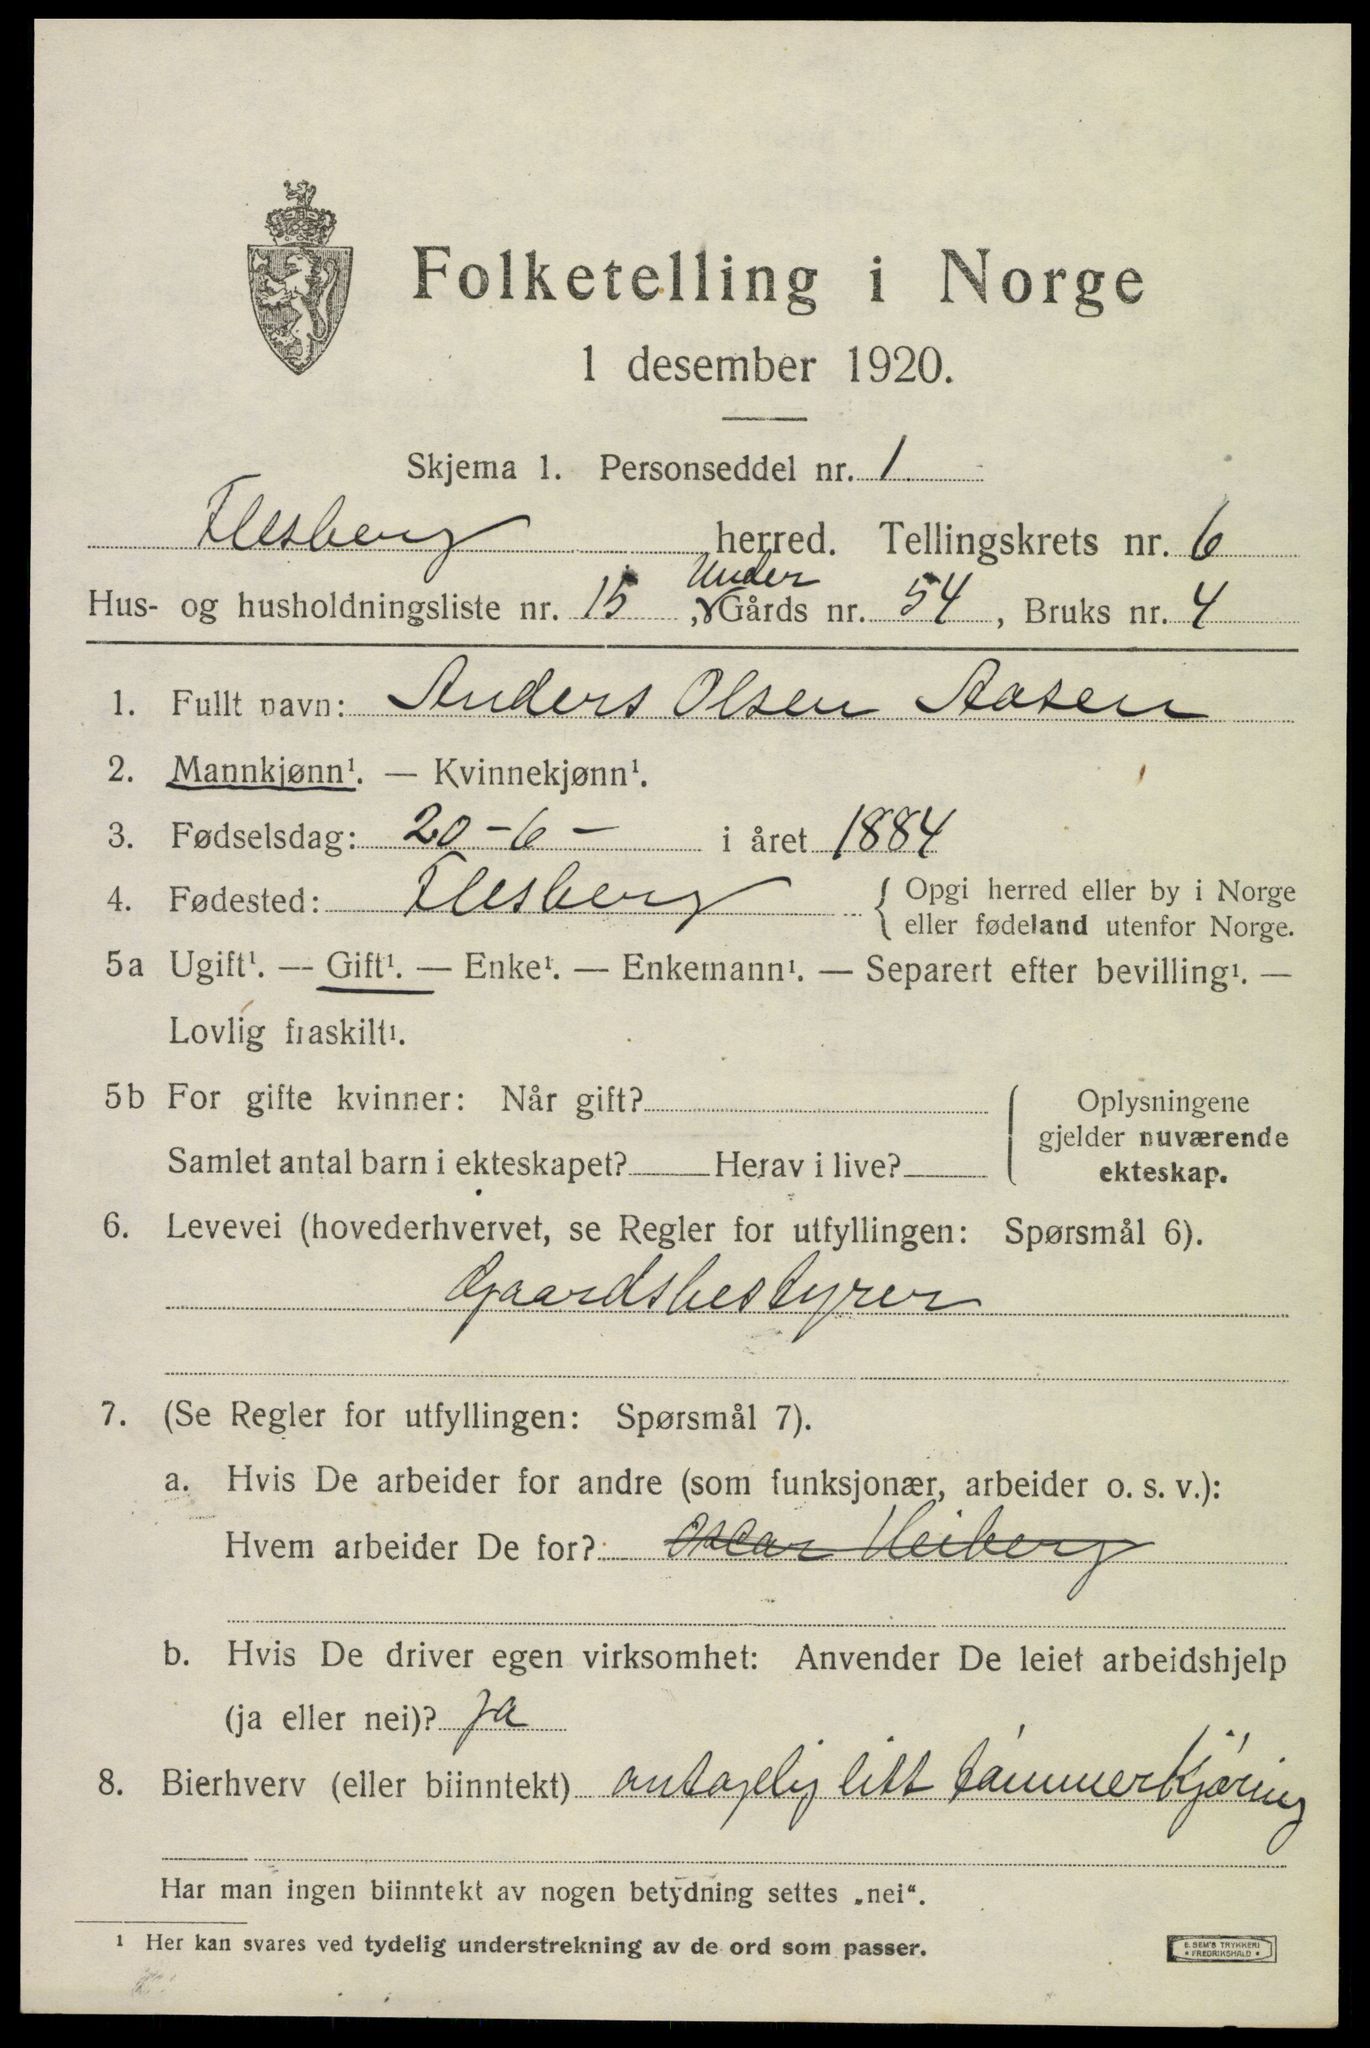 Folketelling i Norge
1 desember 1920.
Skjema 1. Personseddel nr. 1
Flesberg herred. Tellingskrets nr. 6
Under
Hus- og husholdningsliste nr. 15, Gårds nr. 54, Bruks nr. 4
1. Fullt navn: Anders Olsen Aasen
2. Mannkjønn¹. — Kvinnekjønn¹.
3. Fødselsdag: 20-6- i året 1884
4. Fødested: Flesberg { Opgi herred eller by i Norge
eller fødeland utenfor Norge.
5a Ugift¹. — Gift¹. — Enke¹. — Enkemann¹. — Separert efter bevilling¹. —
Lovlig fraskilt¹.
5b For gifte kvinner: Når gift?
Samlet antal barn i ekteskapet? Herav i live?
Oplysningene
gjelder nuværende
ekteskap.
6. Levevei (hovederhvervet, se Regler for utfyllingen: Spørsmål 6).
Gaardsbestyrer
7. (Se Regler for utfyllingen: Spørsmål 7).
a. Hvis De arbeider for andre (som funksjonær, arbeider o. s. v.):
Hvem arbeider De for? Oscar Heiberg
b. Hvis De driver egen virksomhet: Anvender De leiet arbeidshjelp
(ja eller nei)? Ja
8. Bierhverv (eller biinntekt) antagelig litt tømmerkjøring
Har man ingen biinntekt av nogen betydning settes „nei“.
¹ Her kan svares ved tydelig understrekning av de ord som passer.
E. SEM'S TRYKKERI
* FREDRIKSHALD *